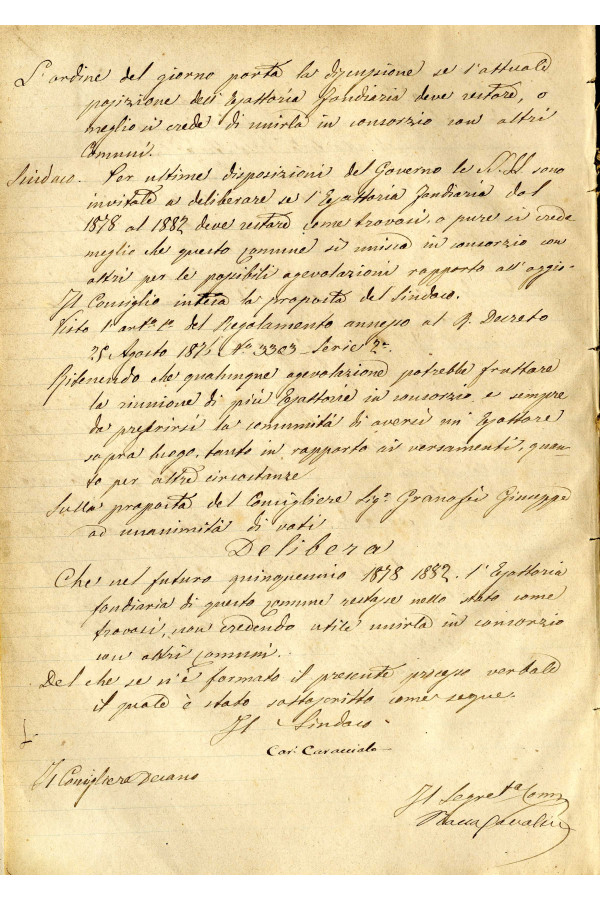 L'ordine del giorno porta la discussione se l'attuale
posizione dell'Esattoria fondiaria deve restare, o
meglio si crede di unirla in consorzio con altri
Comuni.
Sindaco. Per ultime disposizioni del Governo le SS. LL. sono
invitate a deliberare se l'Esattoria fondiaria dal
1878 al 1882 deve restare come trovasi, o pure si crede
meglio che questo Comune si unisca in consorzio con
altri per le possibili agevolazioni rapporto all'aggio.
Il Consiglio intesa la proposta del Sindaco.
Visto l'art.° 1.° del Regolamento annesso al R. Decreto
25 Agosto 1876 N.° 3303 Serie 2.a
Ritenendo che qualunque agevolazione potrebbe fruttare
la riunione di più Esattorie in consorzio, e sempre
da preferirsi la comunità di aversi un'Esattore
sopra luogo, tanto in rapporto ai versamenti, quan-
to per altre circostanze
Sulla proposta del Consigliere Sig.r Granafei Giuseppe
ad unanimità di voti
Delibera
Che nel futuro quinquennio 1878 1882. l'Esattoria
fondiaria di questo Comune restasse nello stato come
trovasi, non credendo utile unirla in consorzio
con altri Comuni.
Del che se n'è formato il presente processo verbale
il quale è stato sottoscritto come segue.
Il Sindaco
Car. Caracciolo
Il Consigliere Decano
Il Segret.o Com.